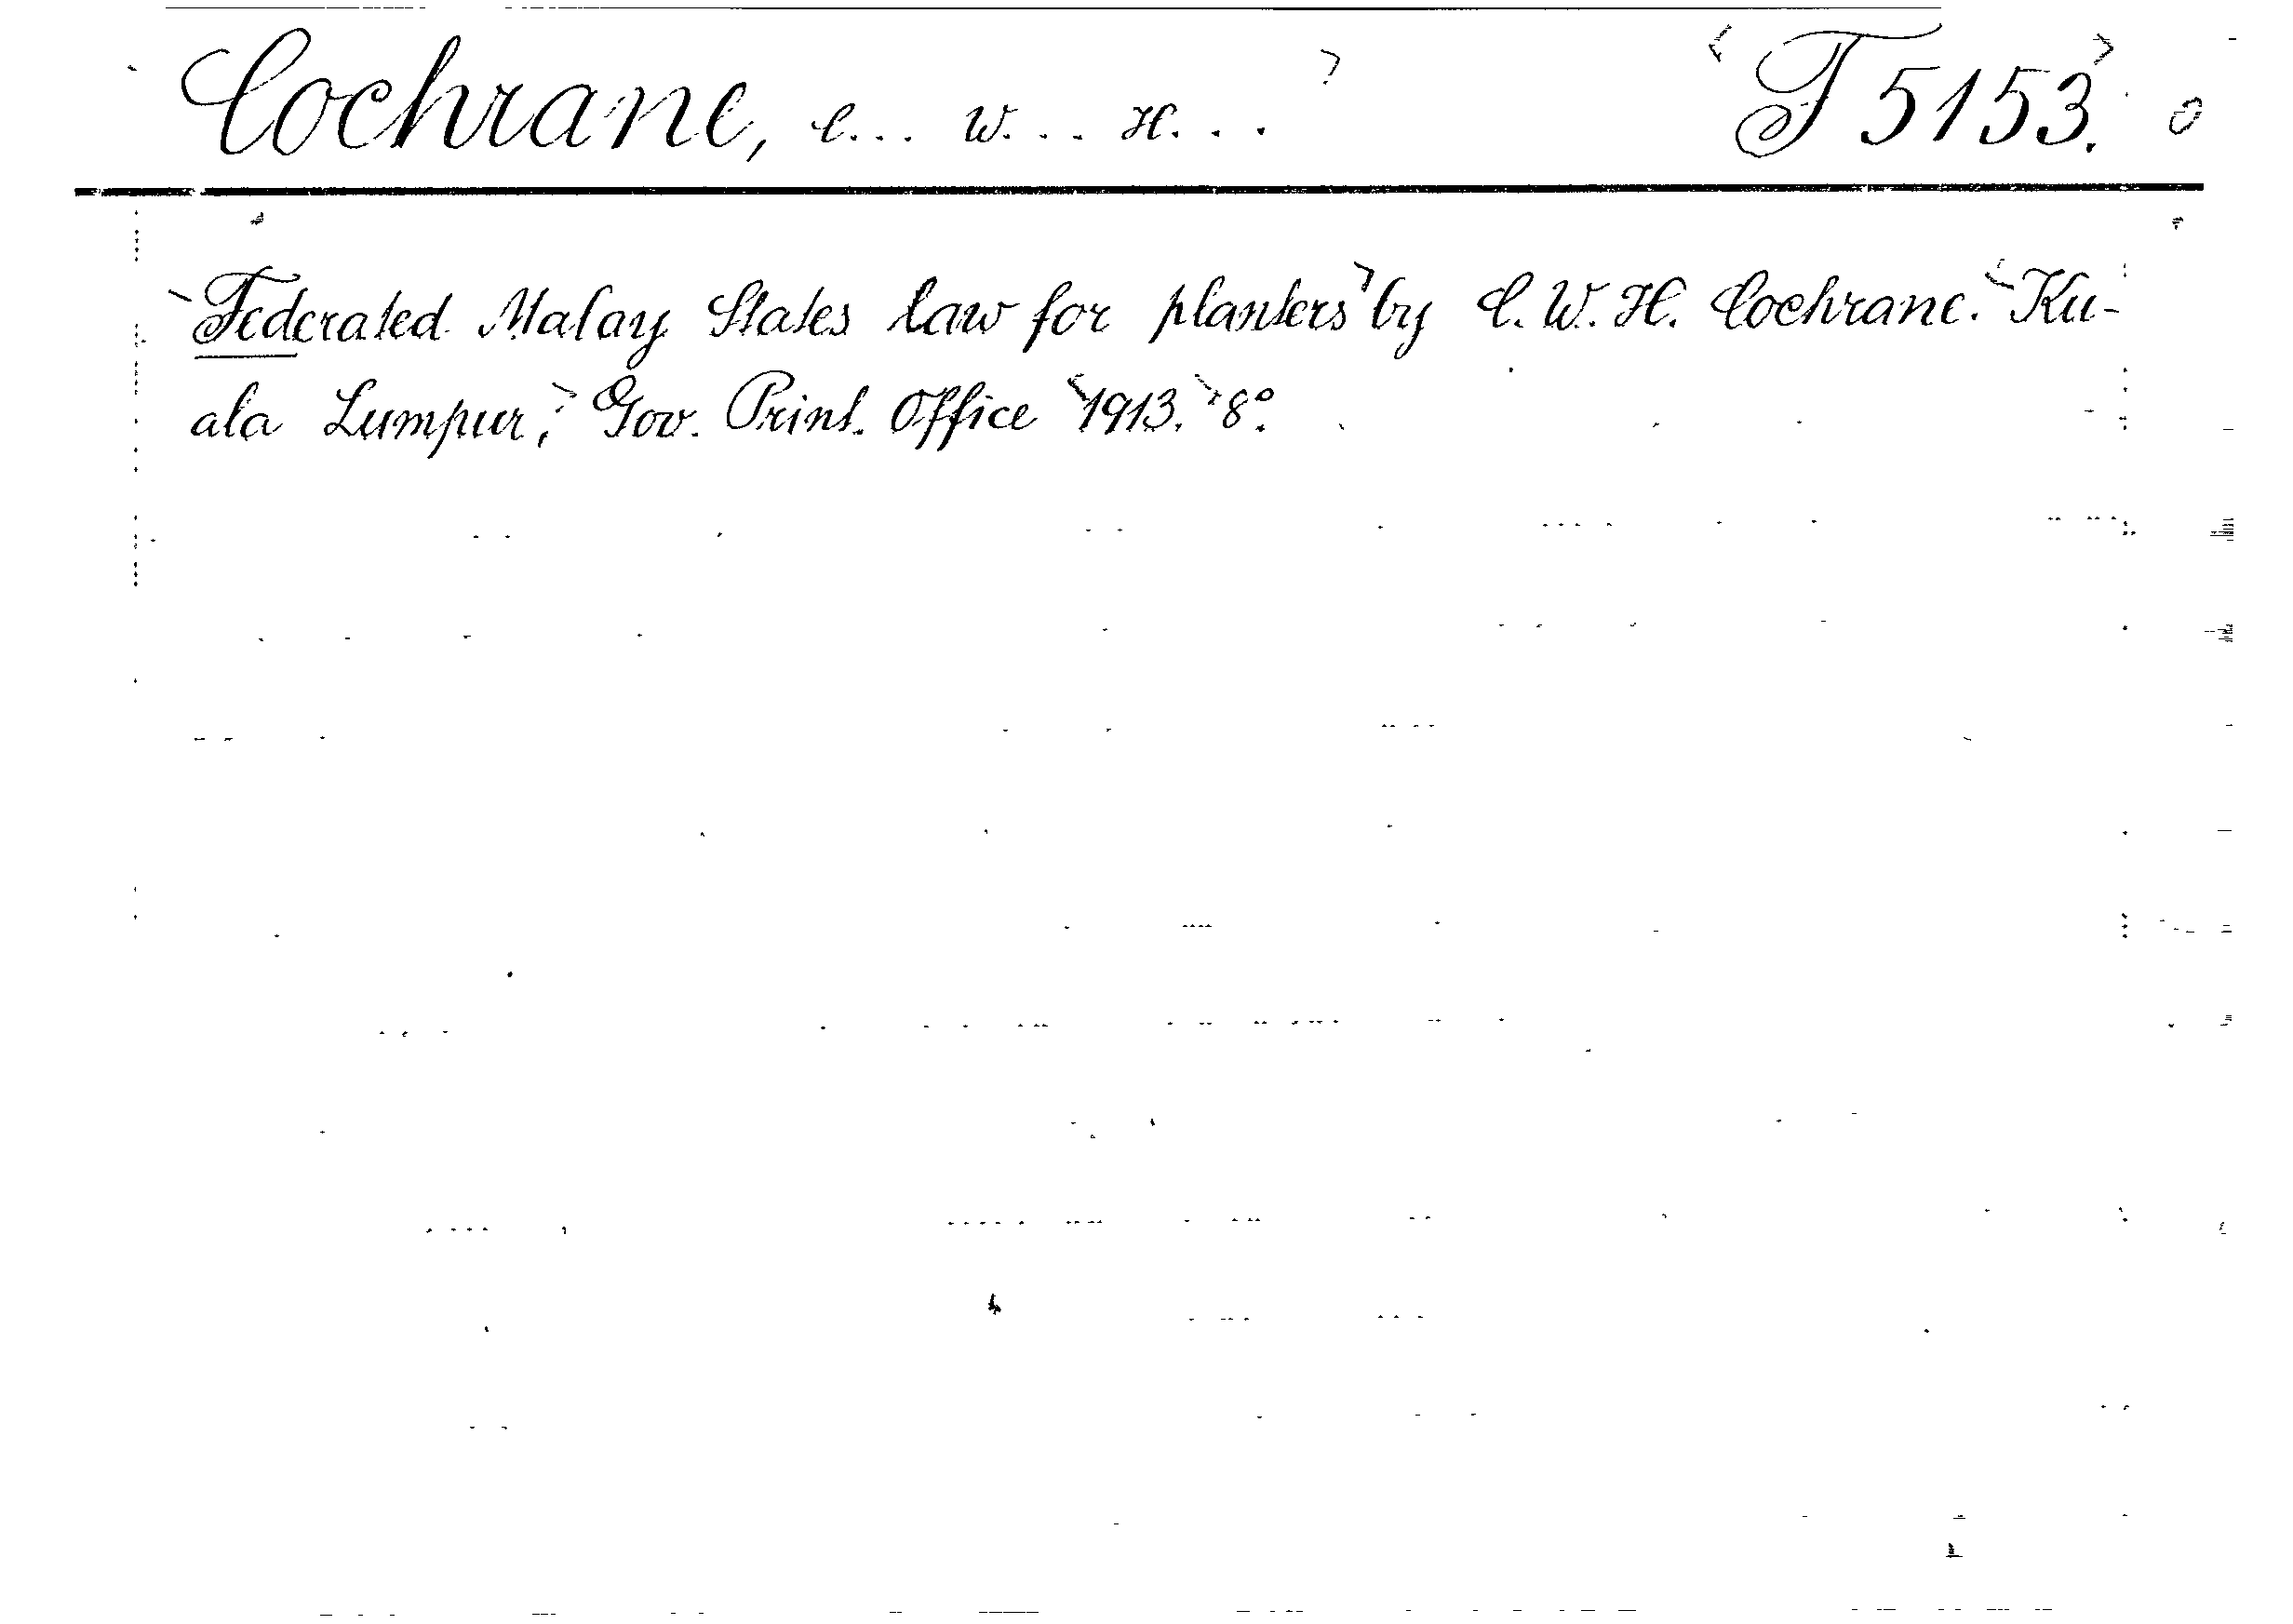 Cochrane, C... W... H... T 5153.
Federated Malay States law for planters by C. W. H. Cochrane. Ku-
ala Lumpur, Gov. Print. Office 1913. 8°.